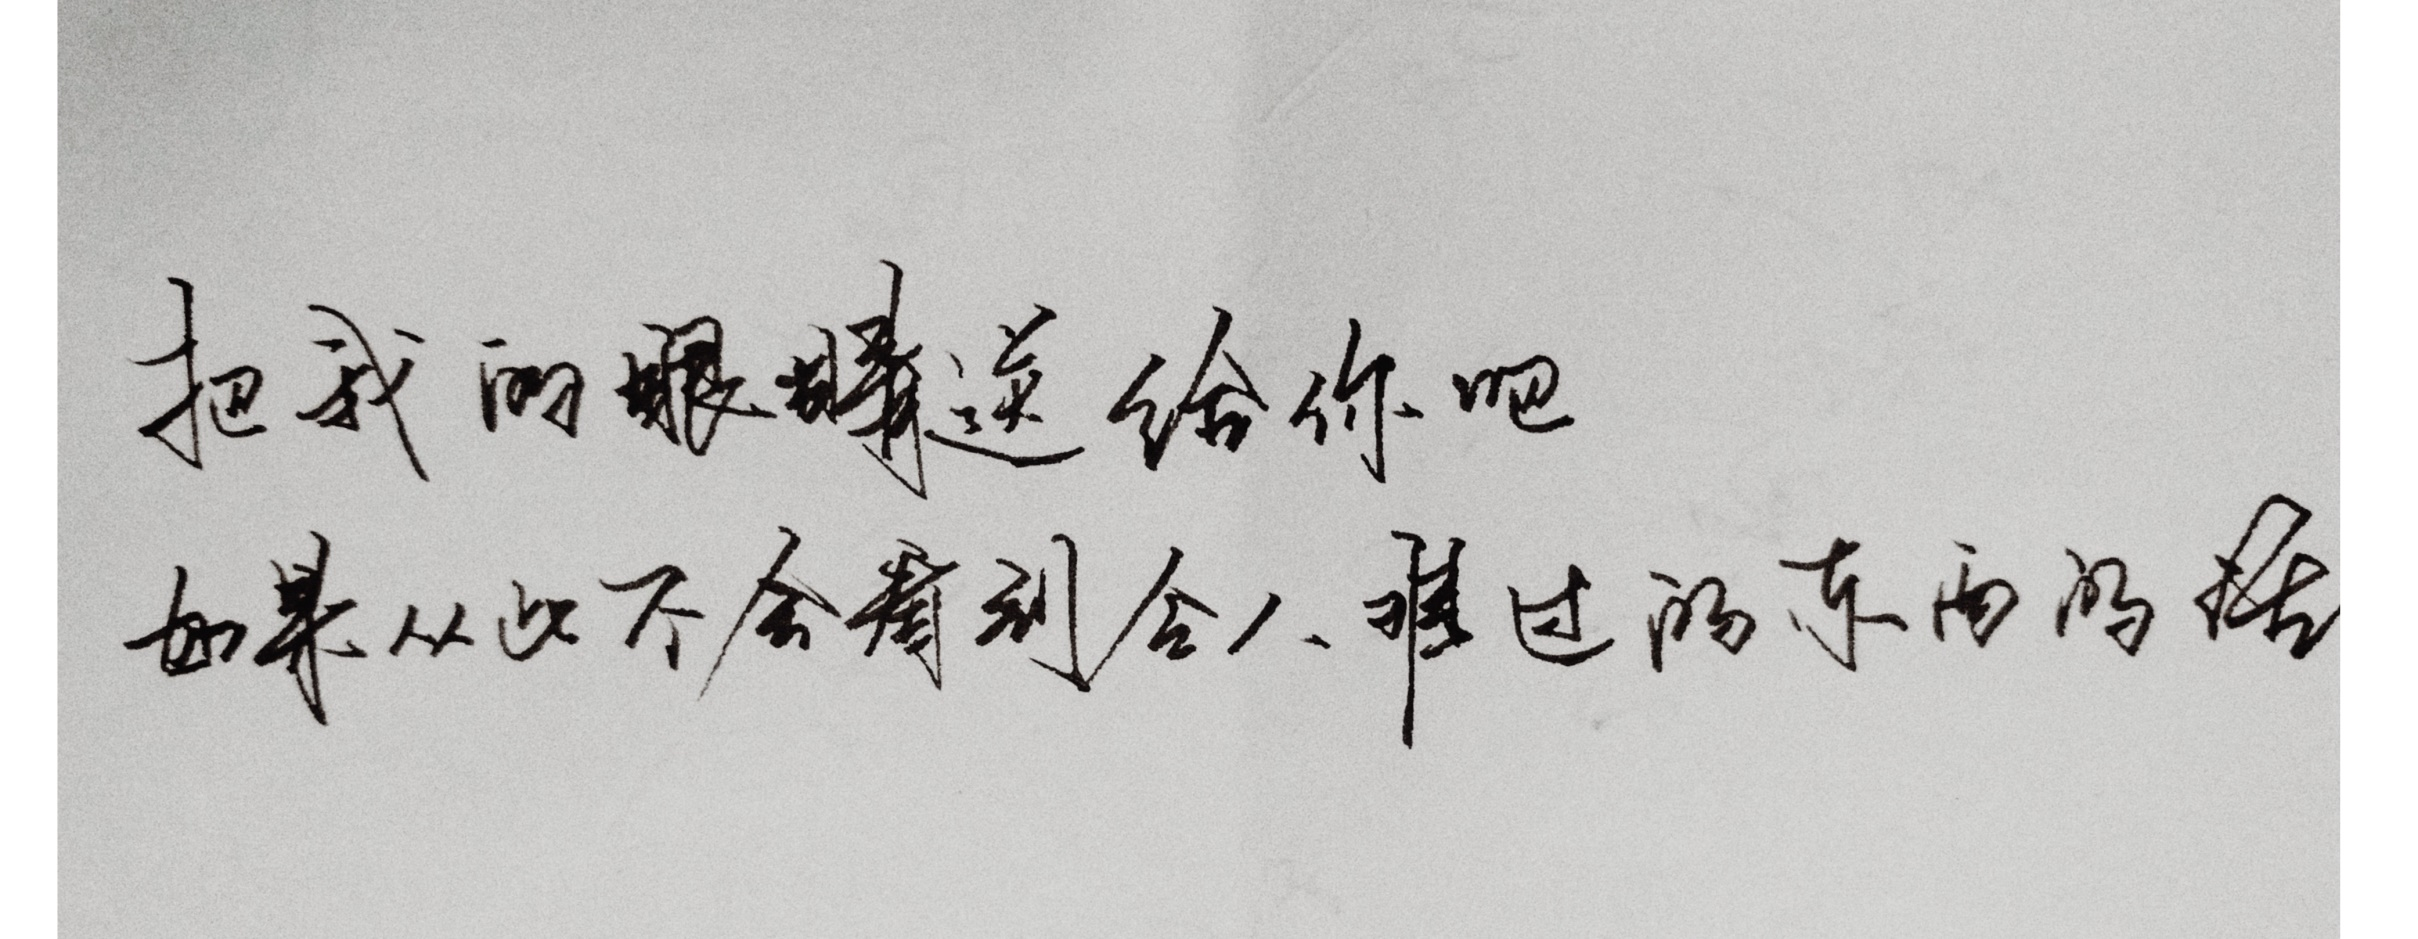 把我的眼睛送给你吧
如果从此不会看到令人难过的东西的话